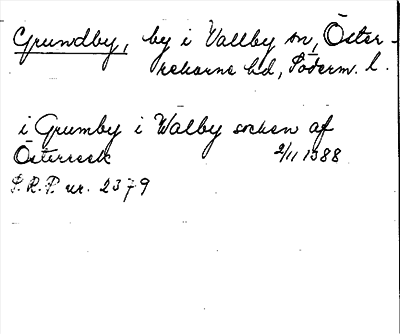 Grundby, by i Vallby sn, Öster-
rekarne hd, Söderm. l.
i Grumby i Walby socken af
Österreek 2/11 1388
S.R.P. nr. 2379